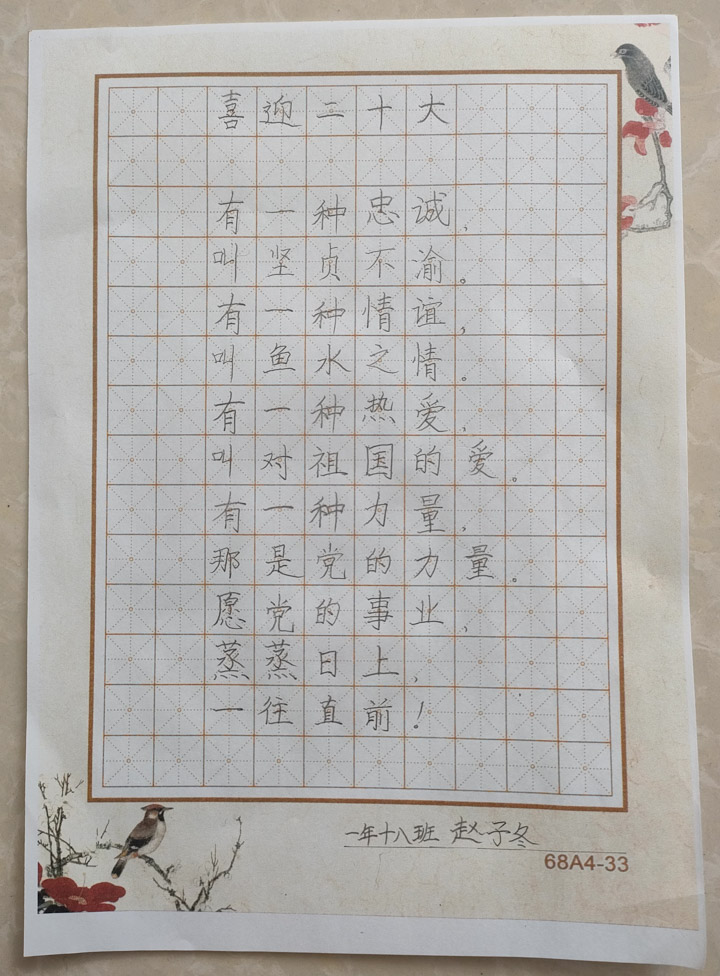 喜迎二十大
有一种忠诚,
叫坚贞不渝。
有一种情谊,
叫鱼水之情。
有一种热爱,
叫对祖国的爱。
有一种力量,
那是党的力量。
愿党的事业,
蒸蒸日上,
一往直前!
一年十八班 赵子冬
68A4-33